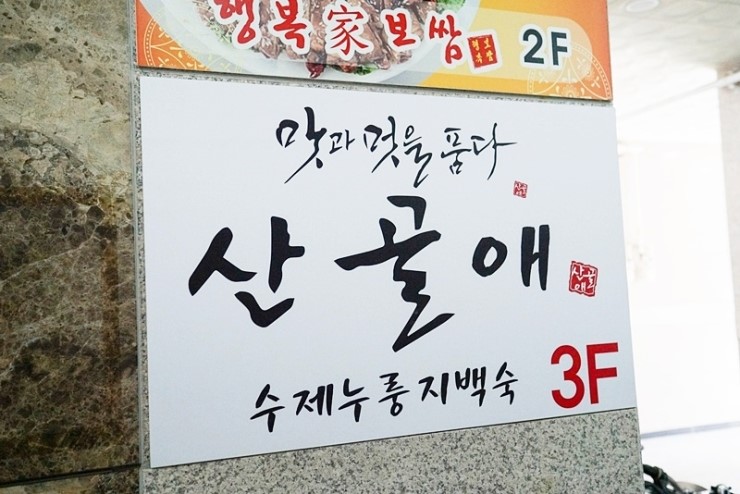 행복家보쌈
2F
맛과 멋을 품다
산골애
산골애
수제누룽지백숙
3F